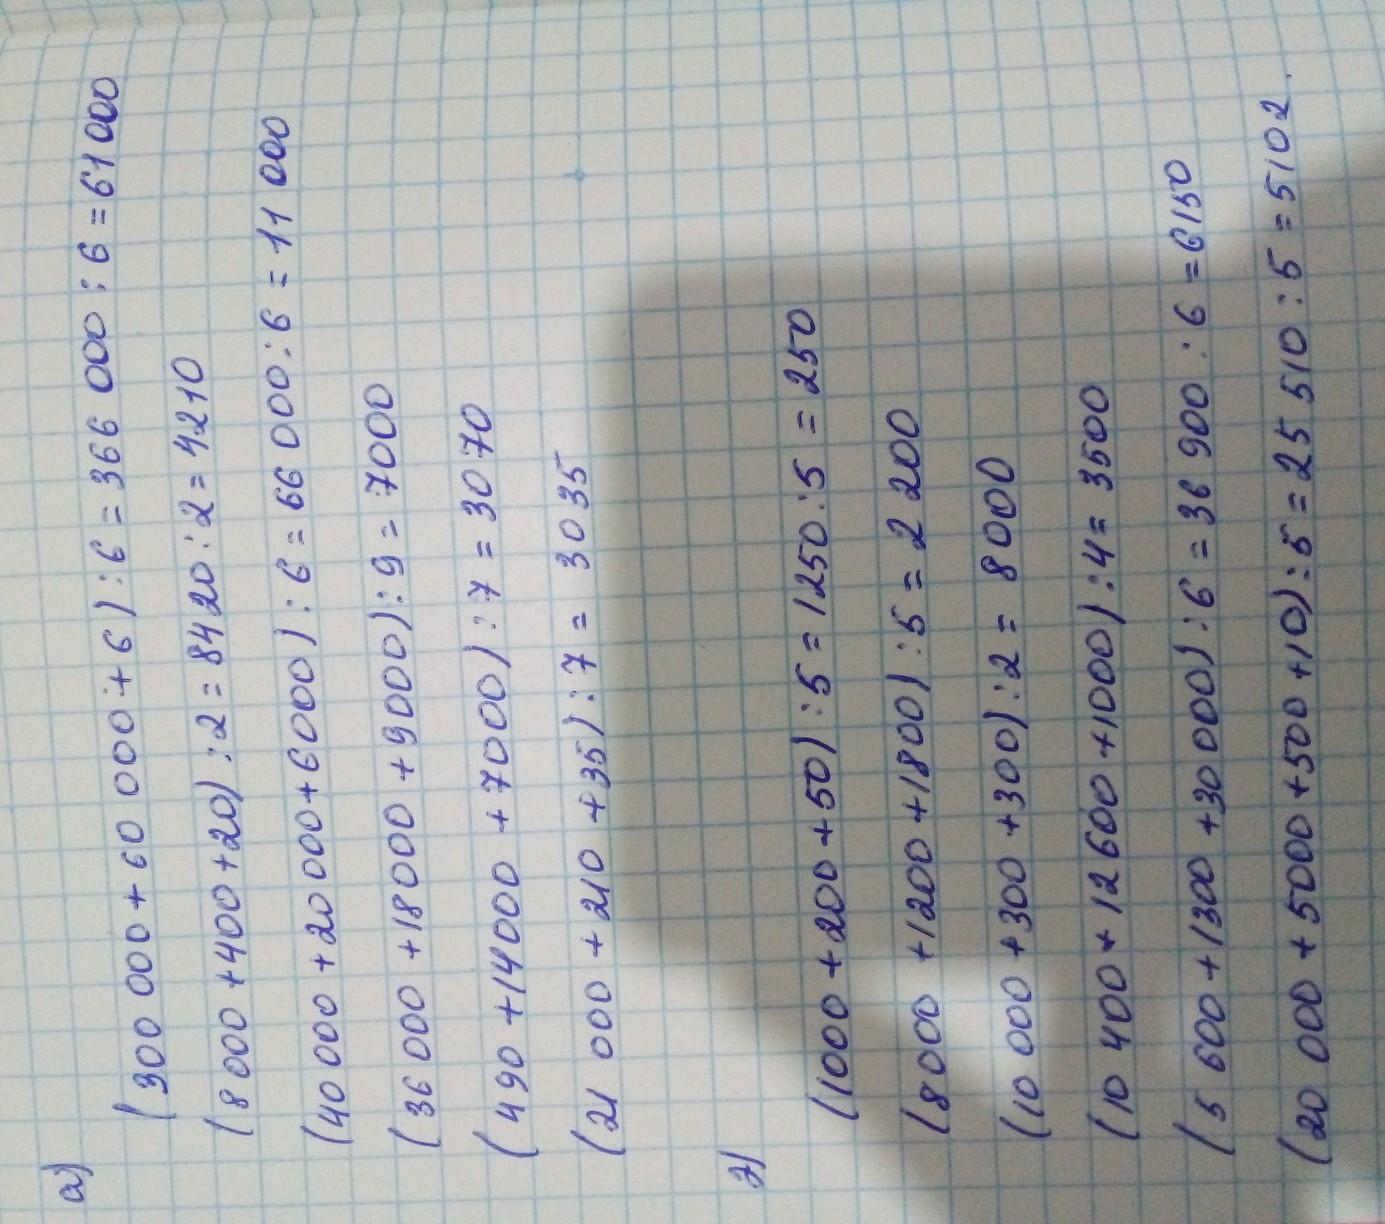 а)
(300 000 + 60 000 + 6) : 6 = 366 000 : 6 = 61 000
(8 000 + 400 + 20) : 2 = 8420 : 2 = 4210
(40 000 + 20 000 + 6000) : 6 = 66 000 : 6 = 11 000
(36 000 + 18000 + 9000) : 9 = 7000
(490 + 14000 + 7000) : 7 = 3070
(21 000 + 210 + 35) : 7 = 3035
г)
(1000 + 200 + 50) : 5 = 1250 : 5 = 250
(8000 + 1200 + 1800) : 5 = 2 200
(10 000 + 300 + 300) : 2 = 8000
(10 400 + 12 600 + 1000) : 4 = 3500
(5 600 + 1300 + 30 000) : 6 = 36 900 : 6 = 6150
(20 000 + 5000 + 500 + 10) : 5 = 25 510 : 5 = 5102.